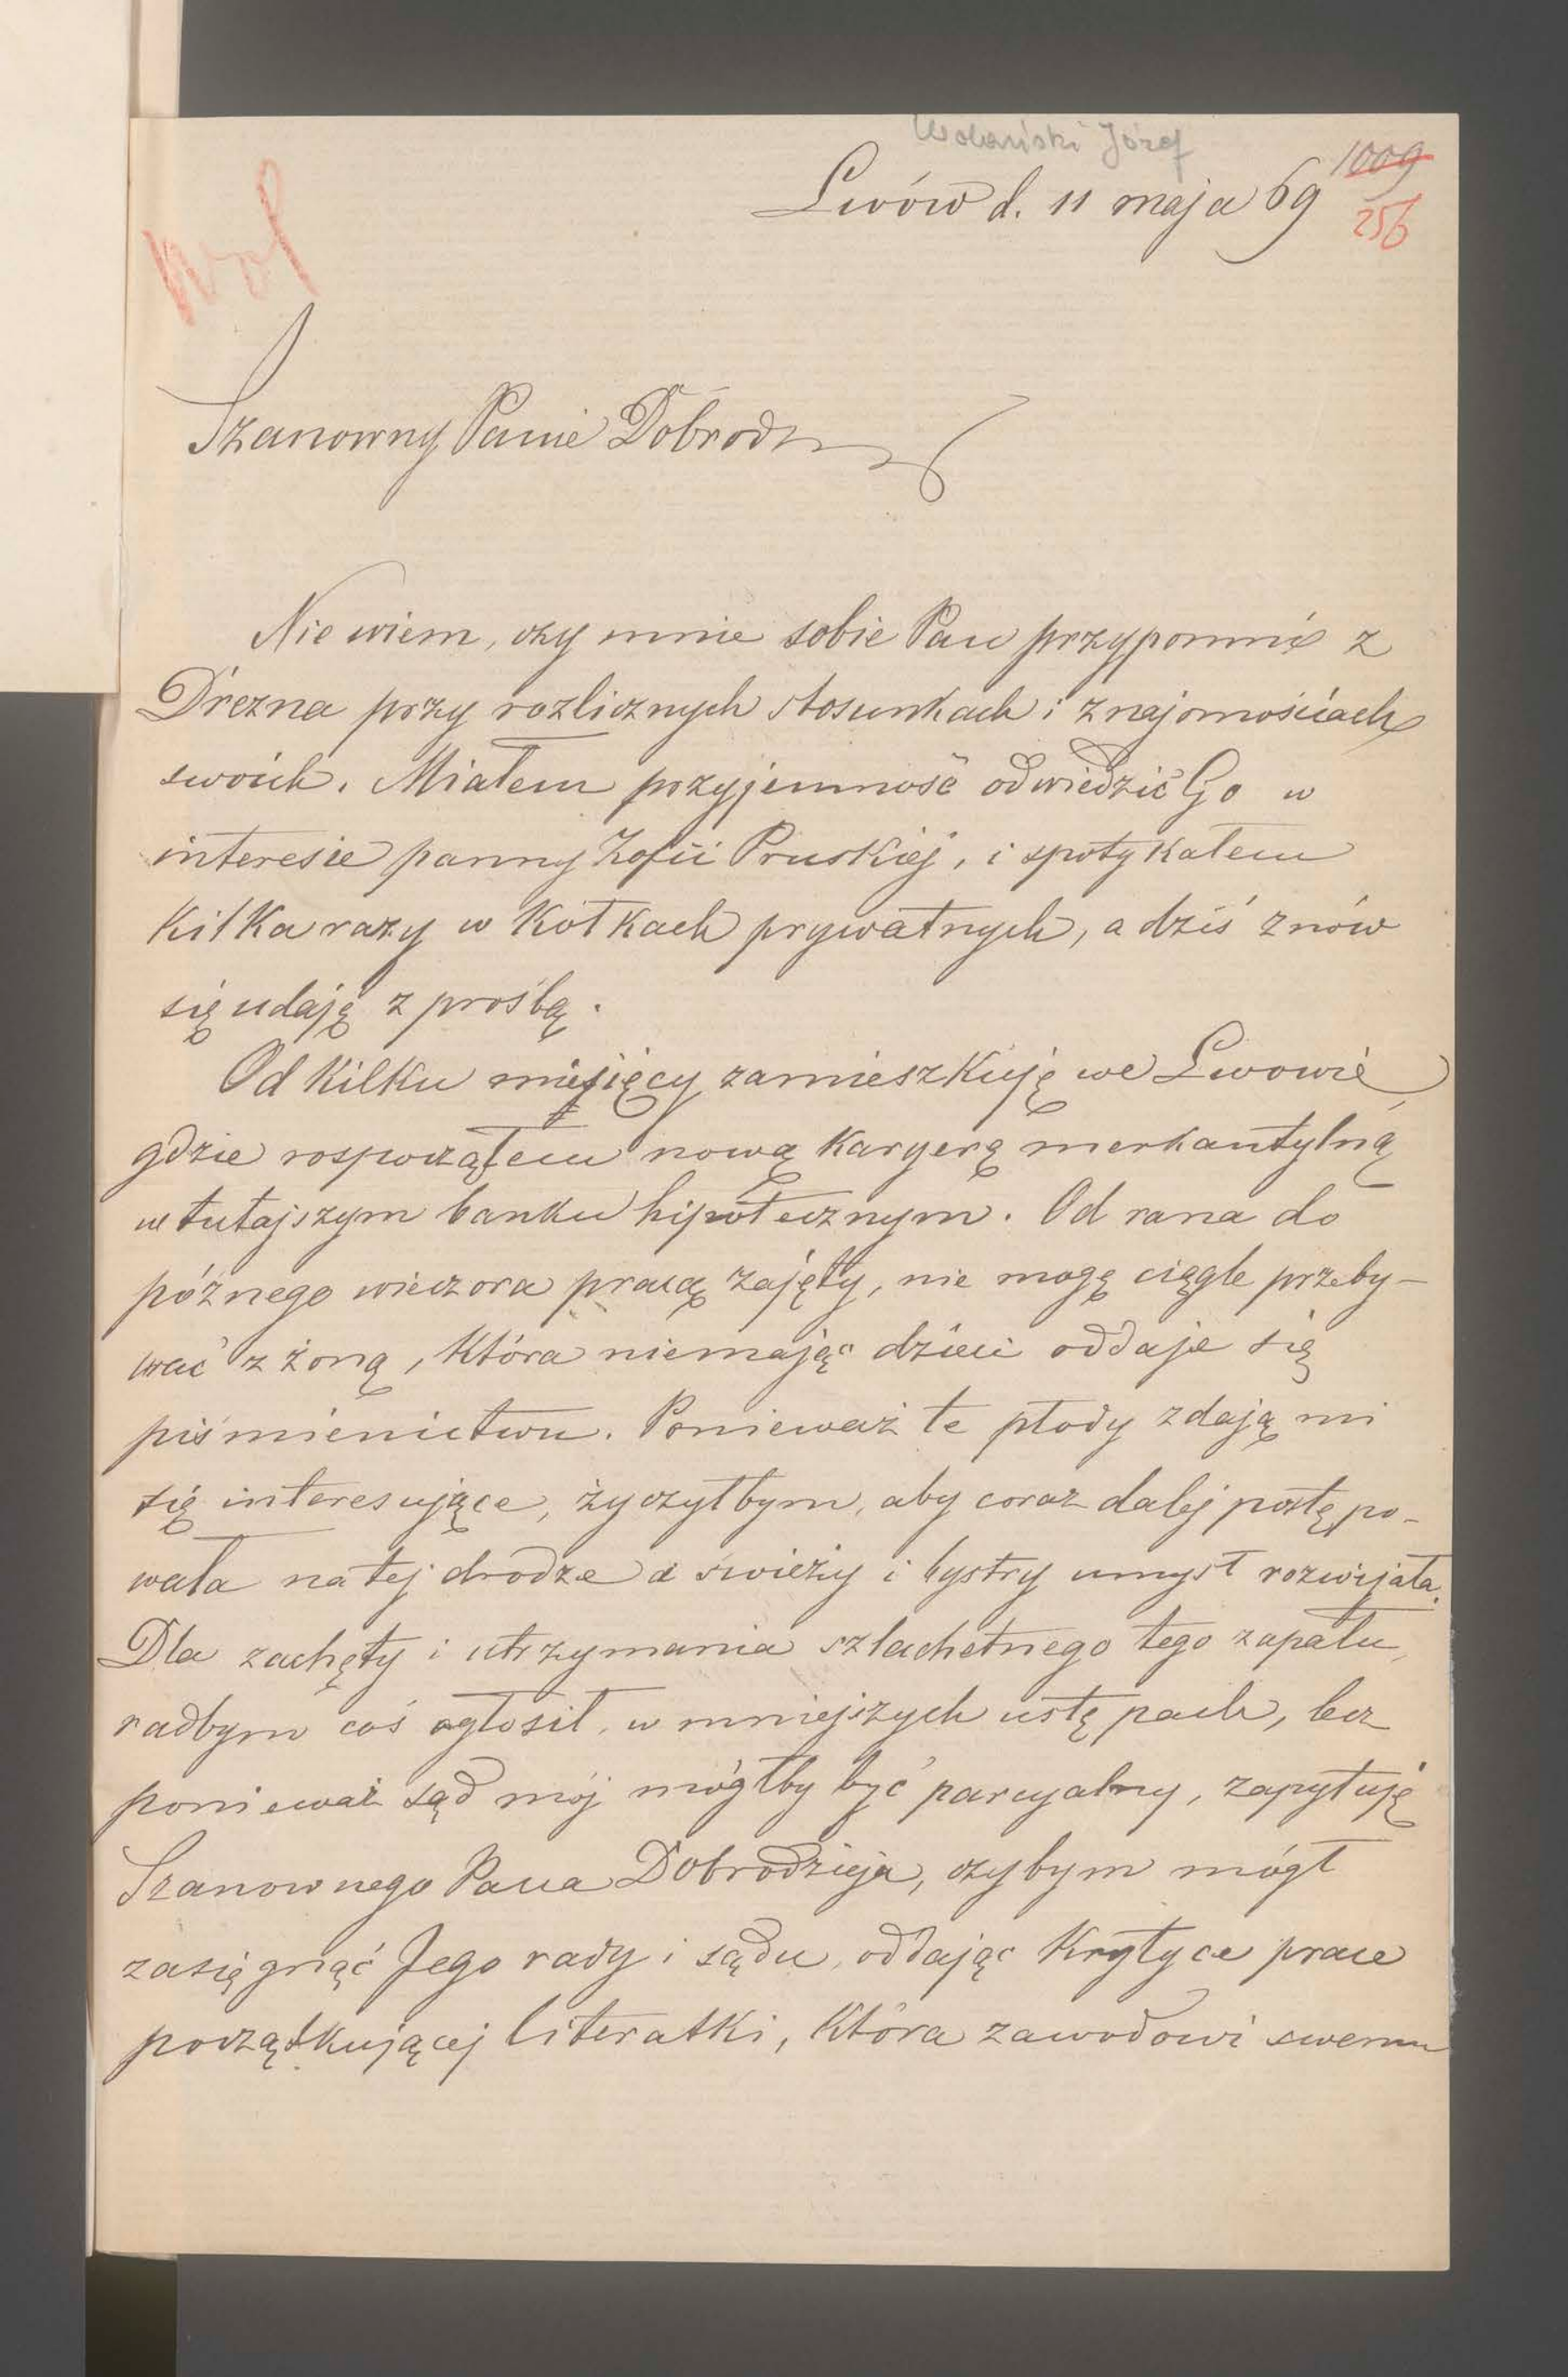 Wolański Józef
1009
Lwów d. 11 maja 69
256
Wol
Szanowny Panie Dobrodz
Nie wiem, czy mnie sobie Pan przypomnie z
Drezna przy rozlicznych stosunkach i znajomościach
swoich. Miałem przyjemność odwiedzić Go w
interesie panny Zofii Pruskiej, i spotykałem
kilka razy w kółkach prywatnych, a dziś znów
się udaję z prośbą.
Od kilku miesięcy zamieszkuję we Lwowie,
gdzie rospocząłem nową karyerę merkantylną
w tutajszym banku hipotecznym. Od rana do
późnego wieczora pracą zajęty, nie mogę ciągle przeby-
wać z żoną, która niemając dzieci oddaje się
piśmienictwu. Ponieważ te płody zdają mi
się interesujące, życzyłbym, aby coraz dalej postępo-
wała na tej drodze a świeży i bystry umysł rozwijała.
Dla zachęty i utrzymania szlachetnego tego zapału,
radbym coś ogłosił, w mniejszych ustępach, lecz
ponieważ sąd mój mógłby być parcyalny, zapytuję
Szanownego Pana Dobrodzieja, czybym mógł
zasięgnąć Jego rady i sądu, oddając krytyce prace
początkującej literatki, która zawodowi swemu